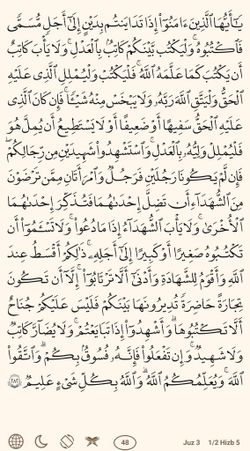 يَـٰٓأَيُّهَا ٱلَّذِينَ ءَامَنُوٓا۟ إِذَا تَدَايَنتُم بِدَيْنٍ إِلَىٰٓ أَجَلٍ مُّسَمًّى
فَٱكْتُبُوهُ ۚ وَلْيَكْتُب بَّيْنَكُمْ كَاتِبٌۢ بِٱلْعَدْلِ ۚ وَلَا يَأْبَ كَاتِبٌ
أَن يَكْتُبَ كَمَا عَلَّمَهُ ٱللَّهُ ۚ فَلْيَكْتُبْ وَلْيُمْلِلِ ٱلَّذِى عَلَيْهِ
ٱلْحَقُّ وَلْيَتَّقِ ٱللَّهَ رَبَّهُۥ وَلَا يَبْخَسْ مِنْهُ شَيْـًٔا ۚ فَإِن كَانَ ٱلَّذِى
عَلَيْهِ ٱلْحَقُّ سَفِيهًا أَوْ ضَعِيفًا أَوْ لَا يَسْتَطِيعُ أَن يُمِلَّ هُوَ
فَلْيُمْلِلْ وَلِيُّهُۥ بِٱلْعَدْلِ ۚ وَٱسْتَشْهِدُوا۟ شَهِيدَيْنِ مِن رِّجَالِكُمْ ۖ
فَإِن لَّمْ يَكُونَا رَجُلَيْنِ فَرَجُلٌ وَٱمْرَأَتَانِ مِمَّن تَرْضَوْنَ
مِنَ ٱلشُّهَدَآءِ أَن تَضِلَّ إِحْدَىٰهُمَا فَتُذَكِّرَ إِحْدَىٰهُمَا
ٱلْأُخْرَىٰ ۚ وَلَا يَأْبَ ٱلشُّهَدَآءُ إِذَا مَا دُعُوا۟ ۚ وَلَا تَسْـَٔمُوٓا۟ أَن
تَكْتُبُوهُ صَغِيرًا أَوْ كَبِيرًا إِلَىٰٓ أَجَلِهِۦ ۚ ذَٰلِكُمْ أَقْسَطُ عِندَ
ٱللَّهِ وَأَقْوَمُ لِلشَّهَـٰدَةِ وَأَدْنَىٰٓ أَلَّا تَرْتَابُوٓا۟ ۖ إِلَّآ أَن تَكُونَ
تِجَـٰرَةً حَاضِرَةً تُدِيرُونَهَا بَيْنَكُمْ فَلَيْسَ عَلَيْكُمْ جُنَاحٌ
أَلَّا تَكْتُبُوهَا ۗ وَأَشْهِدُوٓا۟ إِذَا تَبَايَعْتُمْ ۚ وَلَا يُضَآرَّ كَاتِبٌ
وَلَا شَهِيدٌ ۚ وَإِن تَفْعَلُوا۟ فَإِنَّهُۥ فُسُوقٌۢ بِكُمْ ۗ وَٱتَّقُوا۟
ٱللَّهَ ۖ وَيُعَلِّمُكُمُ ٱللَّهُ ۗ وَٱللَّهُ بِكُلِّ شَىْءٍ عَلِيمٌ ٢٨٢
48 Juz 3 1/2 Hizb 5